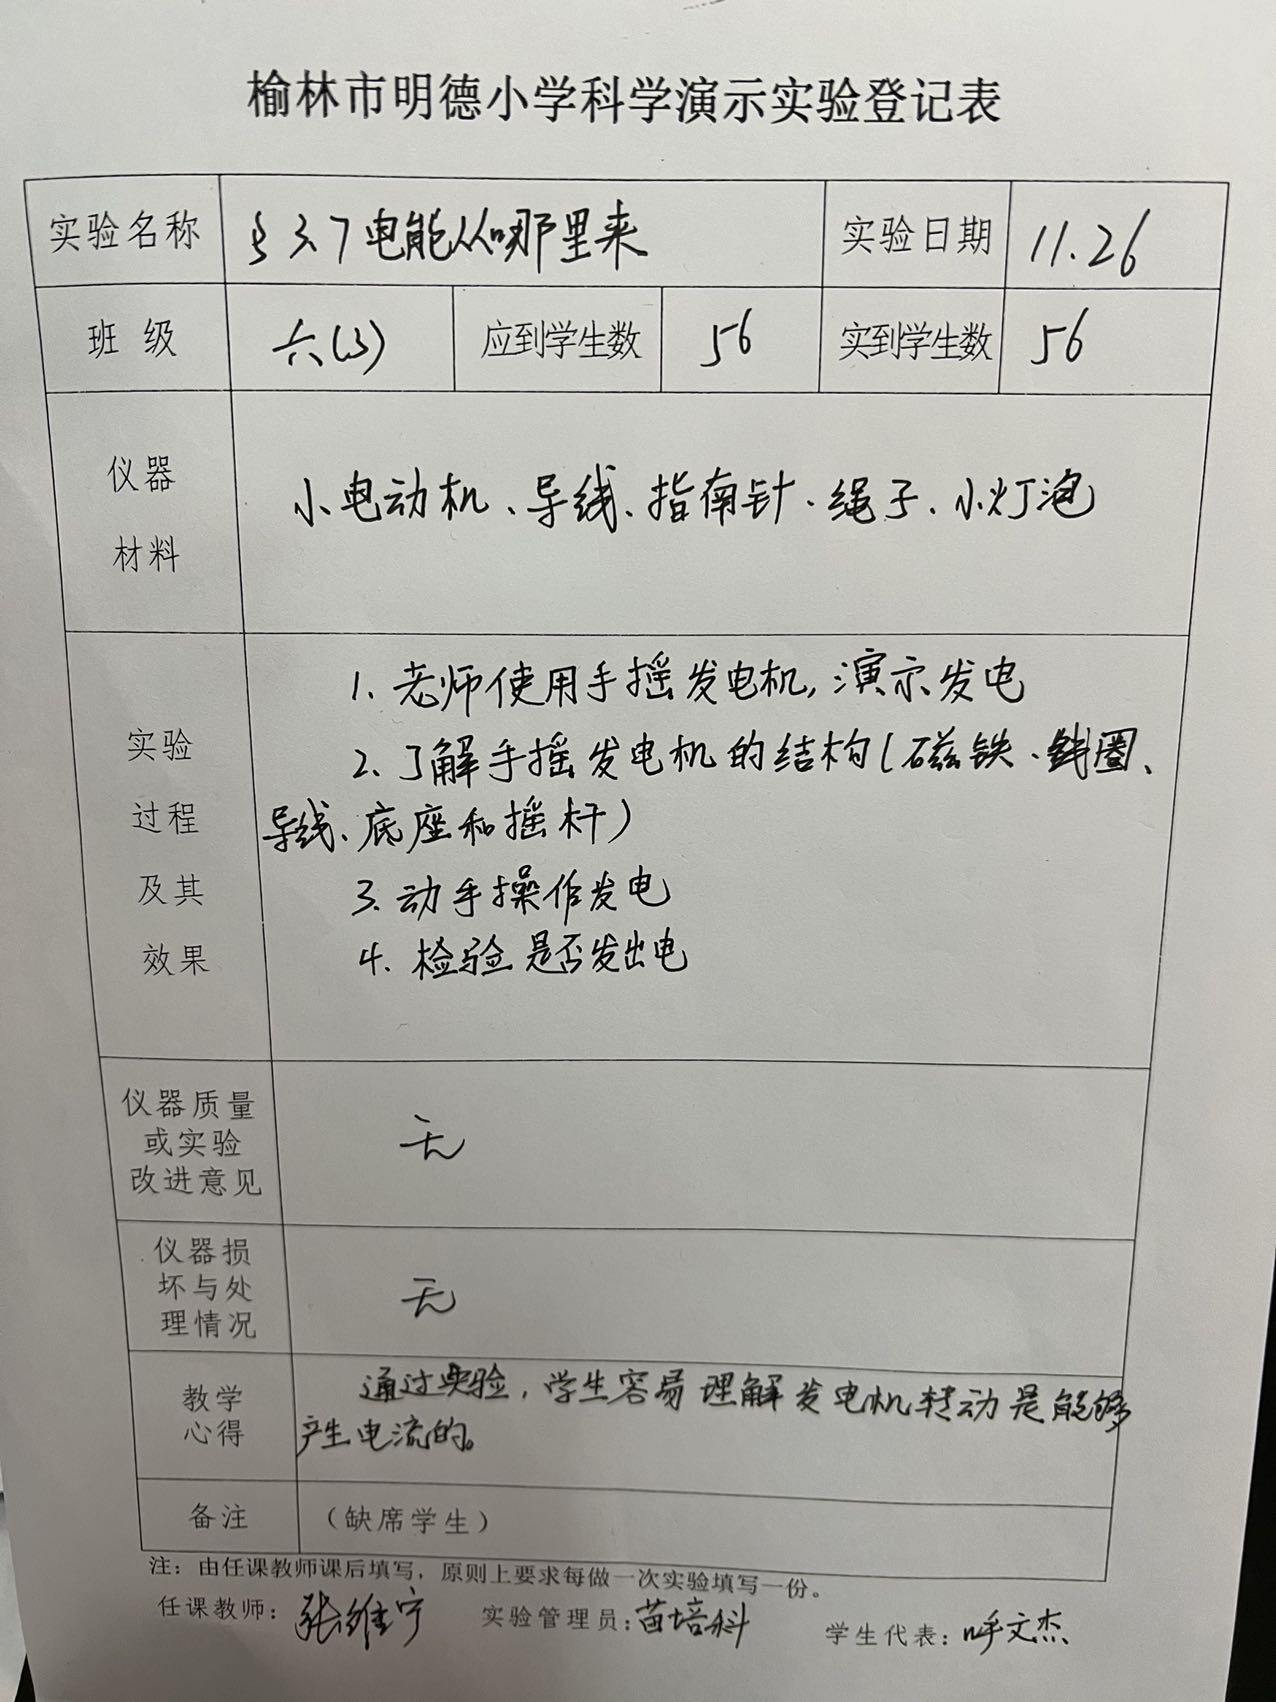 榆林市明德小学科学演示实验登记表
实验名称 §3.7电能从哪里来 实验日期 11.26
班级 六(3) 应到学生数 56 实到学生数 56
仪器
材料
小电动机、导线、指南针、绳子、小灯泡
实验
过程
及其
效果
1.老师使用手摇发电机,演示发电
2.了解手摇发电机的结构(磁铁、线圈、
导线、底座和摇杆)
3.动手操作发电
4.检验是否发出电
仪器质量
或实验
改进意见
无
仪器损
坏与处
理情况
无
教学
心得
通过实验,学生容易理解发电机转动是能够
产生电流的。
备注 (缺席学生)
注:由任课教师课后填写,原则上要求每做一次实验填写一份。
任课教师:张维宁 实验管理员:苗培科 学生代表:呼文杰